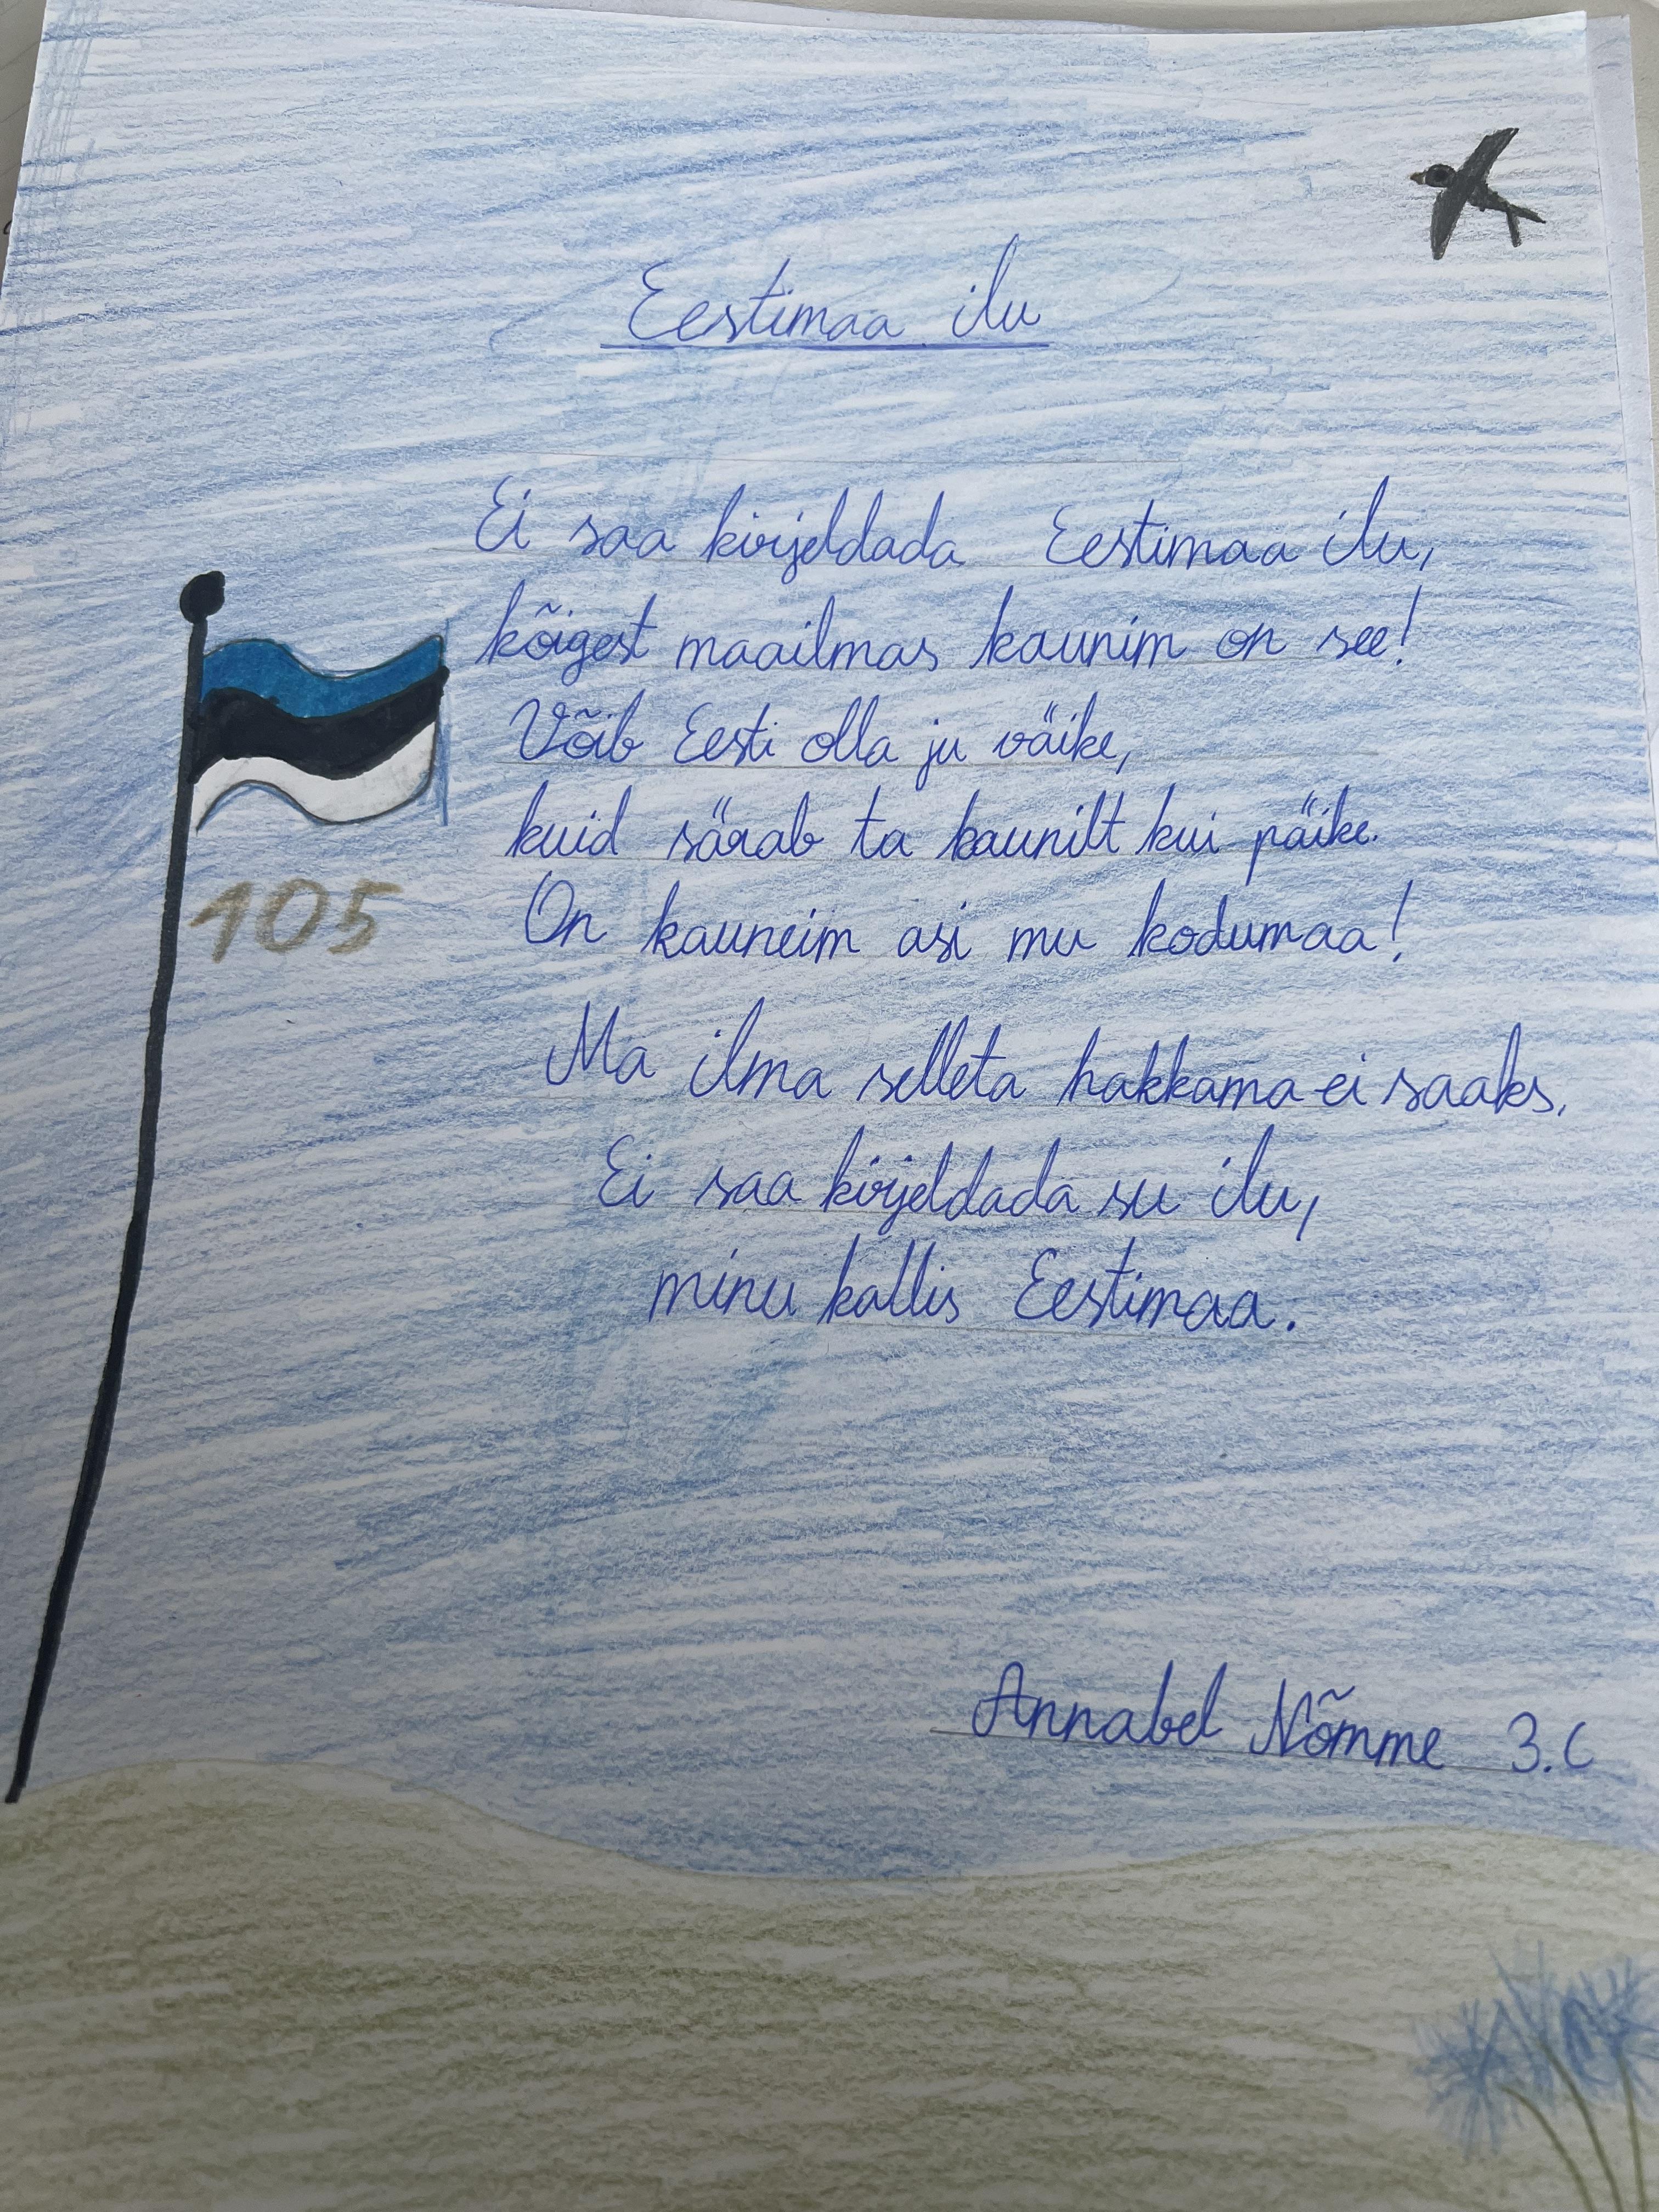 Eestimaa ilu
Ei saa kirjeldada Eestimaa ilu,
kõigest maailmas kaunim on see!
Võib Eesti olla ju väike,
kuid särab ta kaunilt kui päike.
105
On kauneim asi mu kodumaa!
Ma ilma selleta hakkama ei saaks.
Ei saa kirjeldada su ilu,
minu kallis Eestimaa.
Annabel Nõmme 3.C